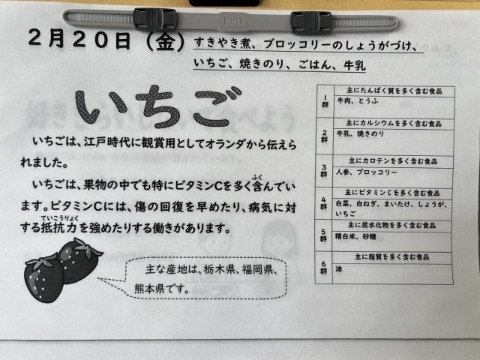 ２月２０日（金）
すきやき煮、ブロッコリーのしょうがづけ、
いちご、焼きのり、ごはん、牛乳
いちご
いちごは、江戸時代に観賞用としてオランダから伝え
られました。
いちごは、果物の中でも特にビタミンCを多く含んでい
ます。ビタミンCには、傷の回復を早めたり、病気に対
する抵抗力を強めたりする働きがあります。
主な産地は、栃木県、福岡県、
熊本県です。
1群
主にたんぱく質を多く含む食品
牛肉、とうふ
2群
主にカルシウムを多く含む食品
牛乳、焼きのり
3群
主にカロテンを多く含む食品
人参、ブロッコリー
4群
主にビタミンCを多く含む食品
白菜、白ねぎ、まいたけ、しょうが、
いちご
5群
主に炭水化物を多く含む食品
精白米、砂糖
6群
主に脂質を多く含む食品
油